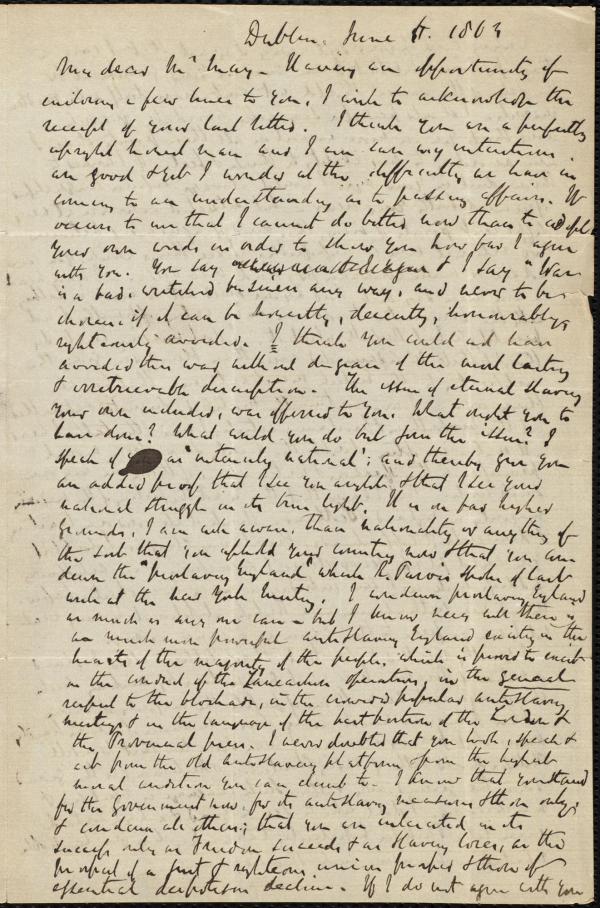 Dublin, June 1863
My dear Mr May - Having an opportunity of
a few lines to you, I wish to acknowledge the
receipt of your last letter. I think you are a perfectly
upright honest man and I am sure my intentions
are good & yet I wonder at the difficulty we have in
coming to an understanding as to passing affairs. It
occurs to me that I cannot do better now than to adopt
your own words in order to show you how far I agree
with you. You say & I say "War
is a bad, wretched business any way, and never to be
chosen if it can be honestly, decently, honourably,
righteously avoided. I think you could not have
avoided this war without disgrace of the most lasting
& irretrievable description. The issue of eternal slavery
your own included, was offered to you. What ought you to
have done? What could you do but join the issue? I
speak of as "intensely national"; and thereby give you
an added proof that I see you aright & that I see your
national struggle in its true light. It is on far higher
grounds, I am well aware, than nationality or anything of
the sort that you uphold your country now & that you
down the "proslavery England" which R. Purvis spoke of last
week at the New York meeting. I condemn proslavery England
as much as any one can - but I know very well there is
a much more powerful antislavery England existing in the
hearts of the majority of the people, which is proved to exist
in the conduct of the Lancashire operatives, in the general
respect to the blockade, in the crowded popular antislavery
meetings & in the language of the best portion of the London &
the Provincial press. I never doubted that you look, speak &
act from the old antislavery platform & from the highest
moral condition you can climb to. I know that you stand
for the Government now for its antislavery measures & those only,
& condemn all others; that you are interested in its
success only as freedom succeeds & as slavery loses, as the
prospect of a just & righteous union & those of
essential despotism decline. If I do not agree with you